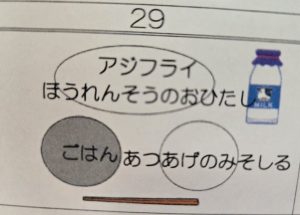 29
アジフライ
ほうれんそうのおひたし
MILK
ごはん あつあげのみそしる